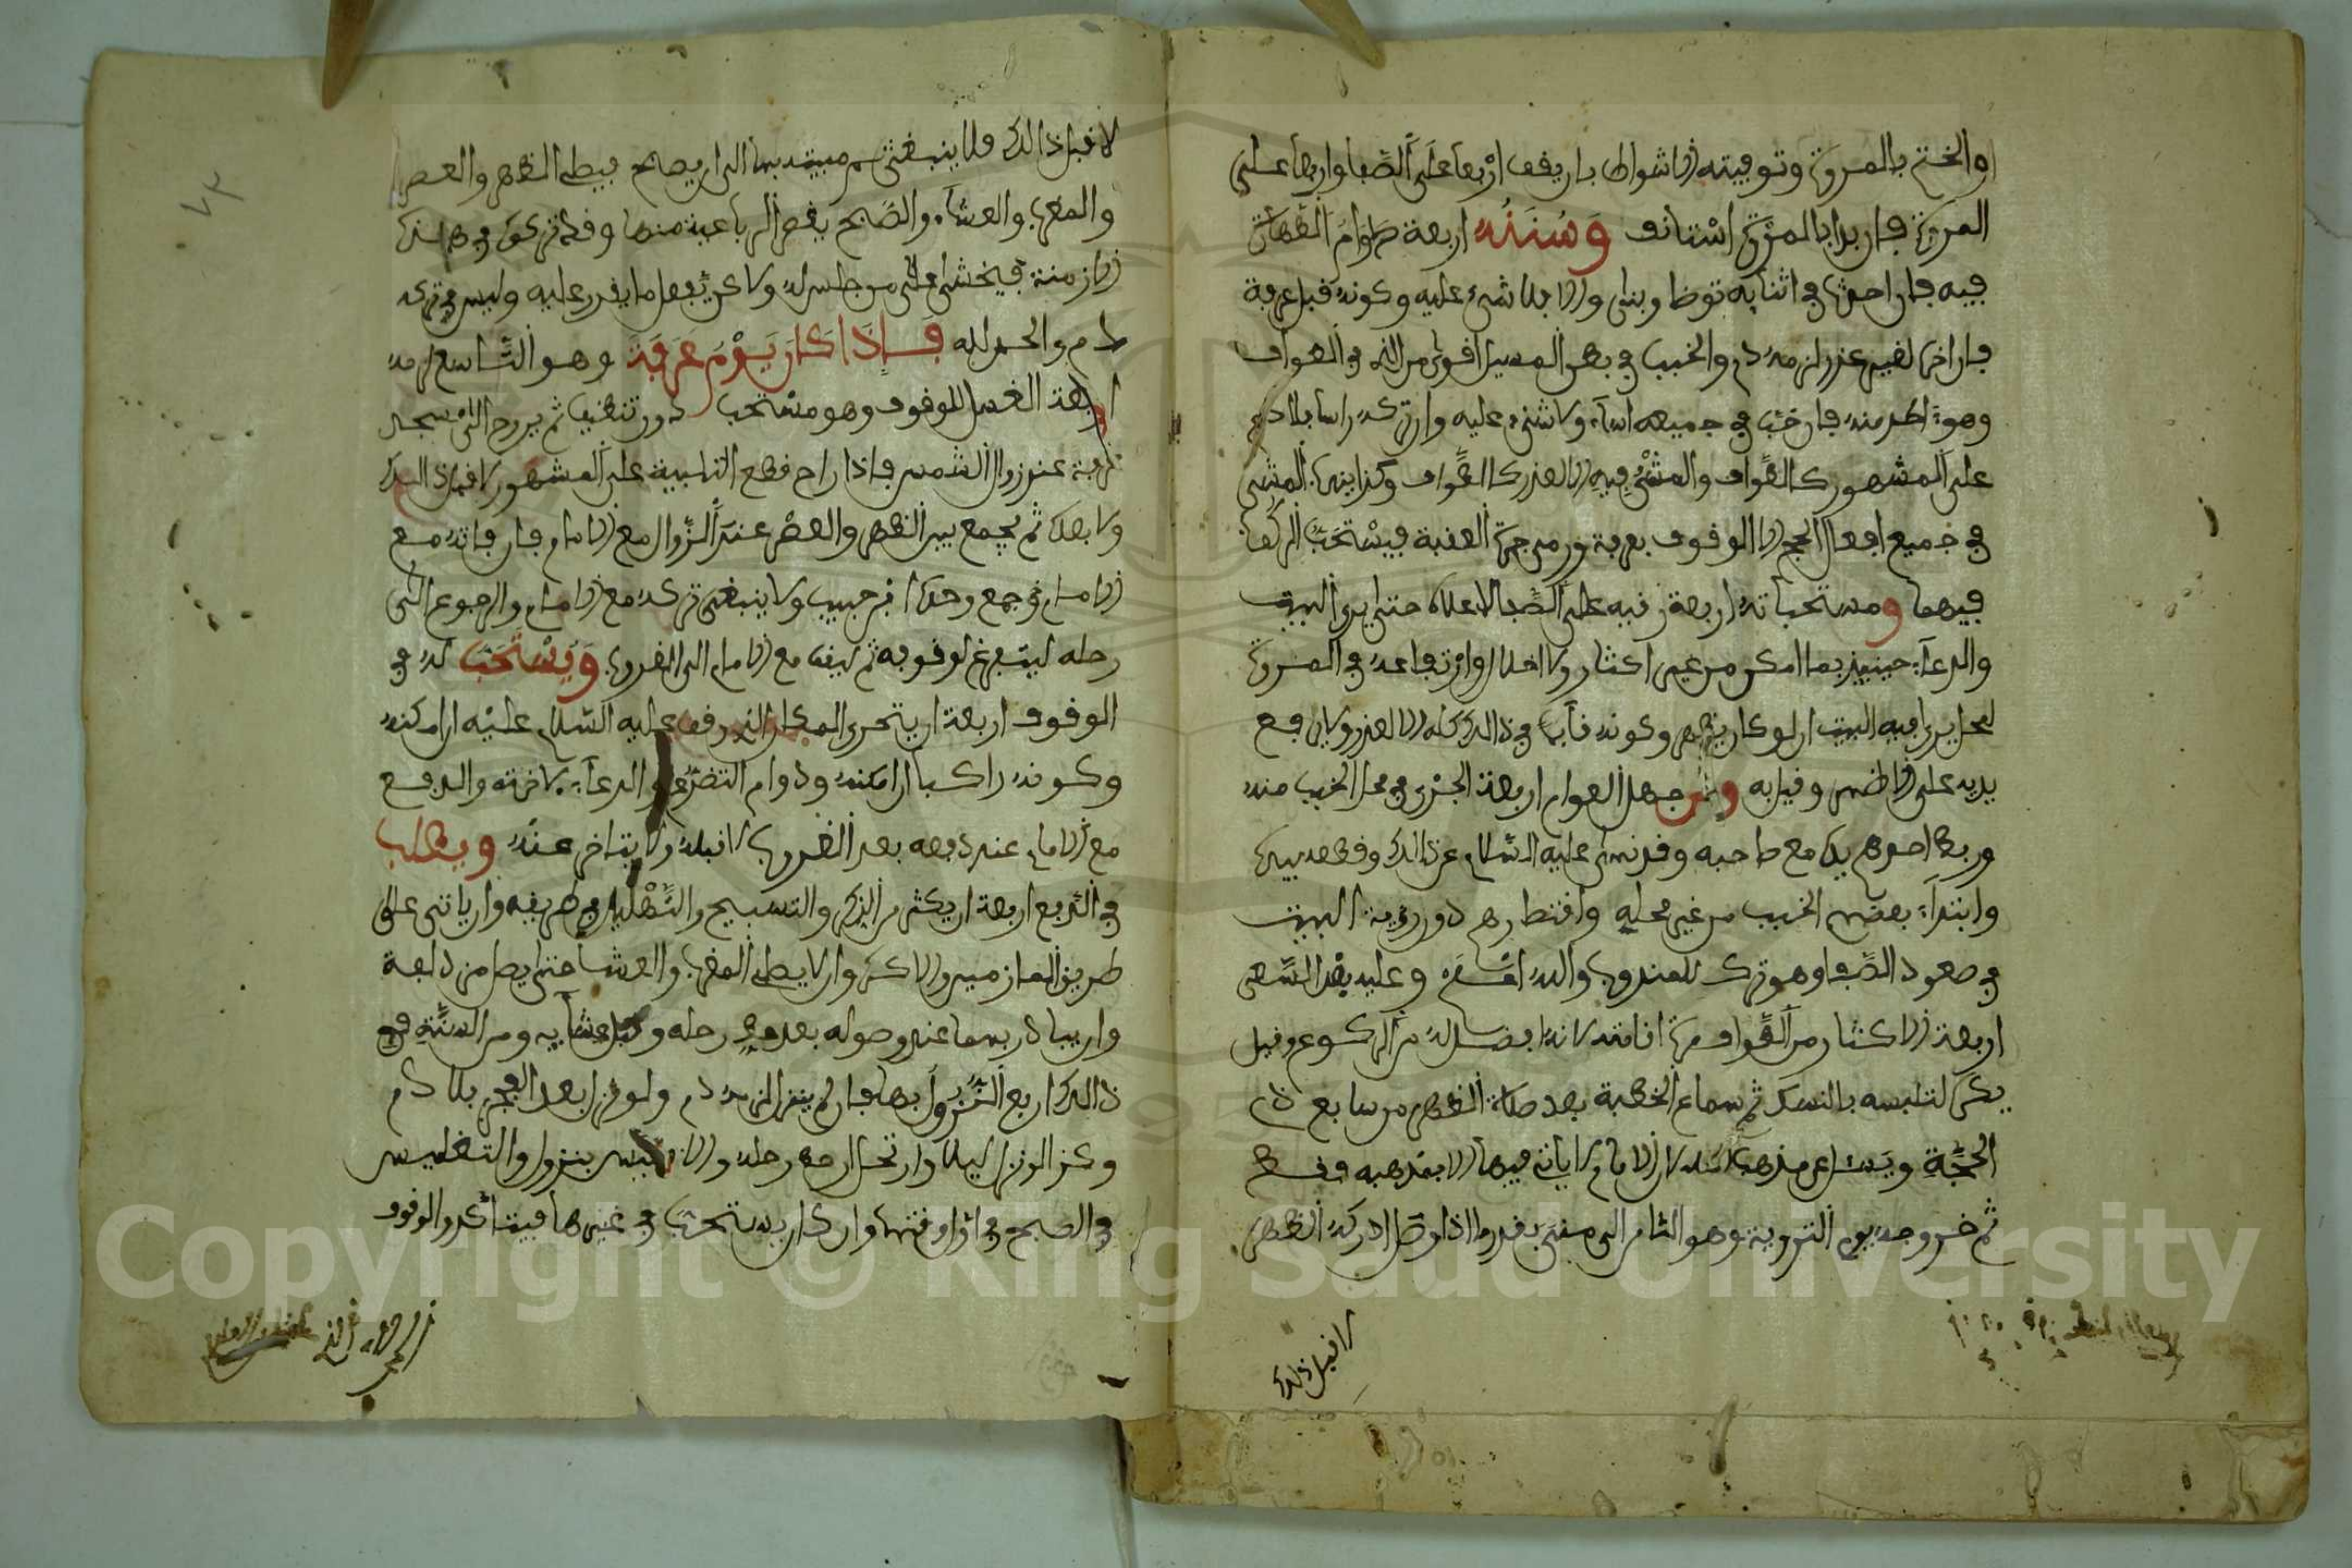 والختم بالمروة وتوفيته الاشواط بان يقف اربعا على الصفا واربعا على
المروة فان بدا بالمروة استانف وسننه اربعة دوام الطهارة
فيه فان احدث في اثنايه توضا وبنى والا فلا شيء عليه وكونه قبل عرفة
فان اخر لغير عذر لزمه دم والخبب في بطن المسيل اقوى من الذي في الطواف
وهو اطد منه فان خب في جميعه اساء ولا شيء عليه وان تركه راسا فلا دم
على المشهور كالطواف والمشي فيه الا لعذر كالطواف وكذا ينبغي المشي
في جميع افعال الحج الا الوقوف بعرفة ورمي جمرة العقبة فيستحب الركوب
فيهما ومستحباته اربعة رقيه على الصفا لاعلاه حتى يرى البيت
والدعاء حينيذ بما امكن من غير اكثار ولا اخلال وارتفاعه في المروة
لمحل يرى فيه البيت ان لو كان يظهر وكونه قايما في ذالك كله الا لعذر ولا يرفع
يديه على الاظهر وقيل به ومن جهل العوام اربعة الجري في محل الخبب منه
وربط احدهم يده مع صاحبه وقد نهى عليه السلام عن ذالك وقطعه بيده
وابتداء بعضهم الخبب من غير محله واقتصارهم دون رؤية البيت
في صعود الصفا وهو ترك للمندوب والله اعلم وعليه بعد السعي
اربعة الاكثار من الطواف مدة اقامته لانه افضل له من الركوع وقيل
يكره لتلبسه بالنسك ثم سماع الخطبة بعد صلاة الظهر من سابع ذي
الحجة ويسال عن مذهب لان الامام لا ياتي فيها الا بمذهبه فقط
ثم خروجه يوم التروية وهو الثامن الى منى بقدر ما اذا وصل ادركه الظهر
لا قبل ذلك
لا قبل ذالك فلا ينبغي ثم مبيته بها الى ان يصبح فيصلي الظهر والعصر
والمغرب والعشاء والصبح يقصر الرباعية منها وقد ترك في هذه
الازمنة فيخشى على من جلس له ولاكن يفعل ما يقدر عليه وليس في تركه
دم والحمد لله فاذا كان يوم عرفة وهو التاسع لزمه
اربعة الغسل للوقوف وهو مستحب دون تنظيف ثم يروح الى مسجد
عرفة عند زوال الشمس فاذا راح قطع التلبية على المشهور لا قبل ذالك
ولا بعده ثم يجمع بين الظهر والعصر عند الزوال مع الامام فان فاته مع
الامام جمع وحده ابن حبيب ولا ينبغي تركه مع الامام والرجوع الى
رحله ليتفرغ لوقوفه ثم ليقف مع الامام الى الغروب ويستحب له في
الوقوف اربعة ان يتحرى المكان الذي وقف عليه السلام عليه ان امكنه
وكونه راكبا ان امكنه ودوام التضرع والدعاء لاخرته والدفع
مع الامام عند دفعه بعد الغروب لا قبله ولا يتاخر عنه ويطلب
في الدفع اربعة ان يكثر من الذكر والتسبيح والتهليل في طريقه وان ياتي على
طريق المازمين والاكره وان لا يصلي المغرب والعشا حتى يصل مزدلفة
وان يبادر بهما عند وصوله بعد حط رحله وقبل عشايه ومن السنة في
ذالك اربع النزول بها فان لم ينزل لزمه دم ولو نزل بعد الفجر فلا دم
وكذا لو نزل ليلا وارتحل ان حط رحله والا فليس بنزول والتغليس
في الصبح في اول وقتها وان كان يستحب في غيرها فيتاكد والوقوف
Copyright © King Saud University